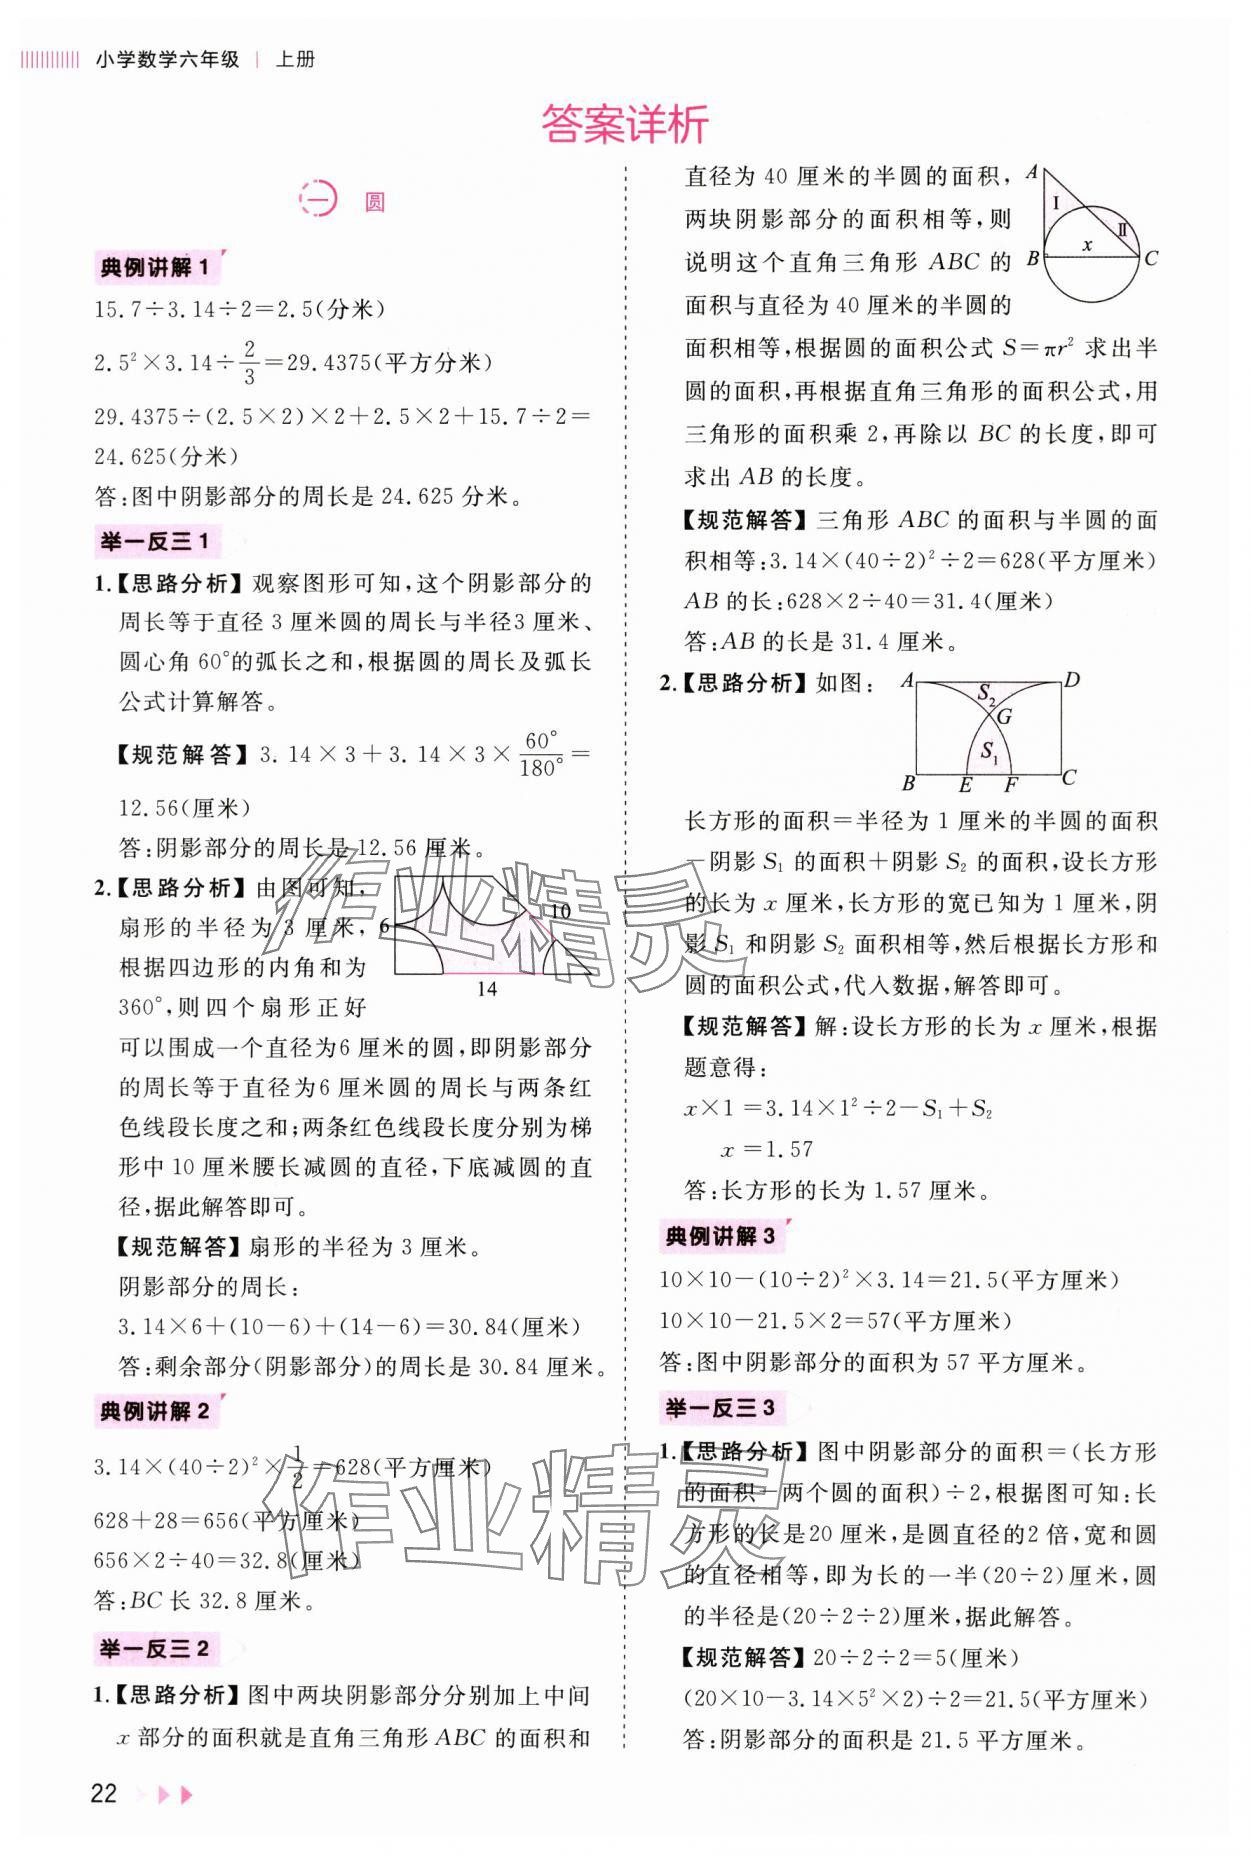 小学数学六年级 | 上册
答案详析
一 圆
典例讲解 1
15.7÷3.14÷2=2.5(分米)
2.5²×3.14÷2/3=29.4375(平方分米)
29.4375÷(2.5×2)×2+2.5×2+15.7÷2=
24.625(分米)
答:图中阴影部分的周长是 24.625 分米。
举一反三 1
1.【思路分析】观察图形可知,这个阴影部分的
周长等于直径 3 厘米圆的周长与半径3 厘米、
圆心角 60°的弧长之和,根据圆的周长及弧长
公式计算解答。
【规范解答】3.14×3+3.14×3×60°/180°=
12.56(厘米)
答:阴影部分的周长是 12.56 厘米。
2.【思路分析】由图可知,
扇形的半径为 3 厘米,
根据四边形的内角和为
360°,则四个扇形正好
6
10
14
可以围成一个直径为6 厘米的圆,即阴影部分
的周长等于直径为6 厘米圆的周长与两条红
色线段长度之和;两条红色线段长度分别为梯
形中 10 厘米腰长减圆的直径,下底减圆的直
径,据此解答即可。
【规范解答】扇形的半径为 3 厘米。
阴影部分的周长:
3.14×6+(10-6)+(14-6)=30.84(厘米)
答:剩余部分(阴影部分)的周长是 30.84 厘米。
典例讲解 2
3.14×(40÷2)²×1/2=628(平方厘米)
628+28=656(平方厘米)
656×2÷40=32.8(厘米)
答:BC 长 32.8 厘米。
举一反三 2
1.【思路分析】图中两块阴影部分分别加上中间
x 部分的面积就是直角三角形 ABC 的面积和
直径为 40 厘米的半圆的面积,
两块阴影部分的面积相等,则
说明这个直角三角形 ABC 的
面积与直径为 40 厘米的半圆的
A
I
II
x
B
C
面积相等,根据圆的面积公式 S=πr² 求出半
圆的面积,再根据直角三角形的面积公式,用
三角形的面积乘 2,再除以 BC 的长度,即可
求出 AB 的长度。
【规范解答】三角形 ABC 的面积与半圆的面
积相等:3.14×(40÷2)²÷2=628(平方厘米)
AB 的长:628×2÷40=31.4(厘米)
答:AB 的长是 31.4 厘米。
2.【思路分析】如图:
A
D
S₂
G
S₁
B E F C
长方形的面积=半径为 1 厘米的半圆的面积
-阴影 S₁ 的面积+阴影 S₂ 的面积,设长方形
的长为 x 厘米,长方形的宽已知为 1 厘米,阴
影 S₁ 和阴影 S₂ 面积相等,然后根据长方形和
圆的面积公式,代入数据,解答即可。
【规范解答】解:设长方形的长为 x 厘米,根据
题意得:
x×1=3.14×1²÷2-S₁+S₂
x=1.57
答:长方形的长为 1.57 厘米。
典例讲解 3
10×10-(10÷2)²×3.14=21.5(平方厘米)
10×10-21.5×2=57(平方厘米)
答:图中阴影部分的面积为 57 平方厘米。
举一反三 3
1.【思路分析】图中阴影部分的面积=(长方形
的面积-两个圆的面积)÷2,根据图可知:长
方形的长是20 厘米,是圆直径的2 倍,宽和圆
的直径相等,即为长的一半(20÷2)厘米,圆
的半径是(20÷2÷2)厘米,据此解答。
【规范解答】20÷2÷2=5(厘米)
(20×10-3.14×5²×2)÷2=21.5(平方厘米)
答:阴影部分的面积是 21.5 平方厘米。
22
作业精灵
作业精灵